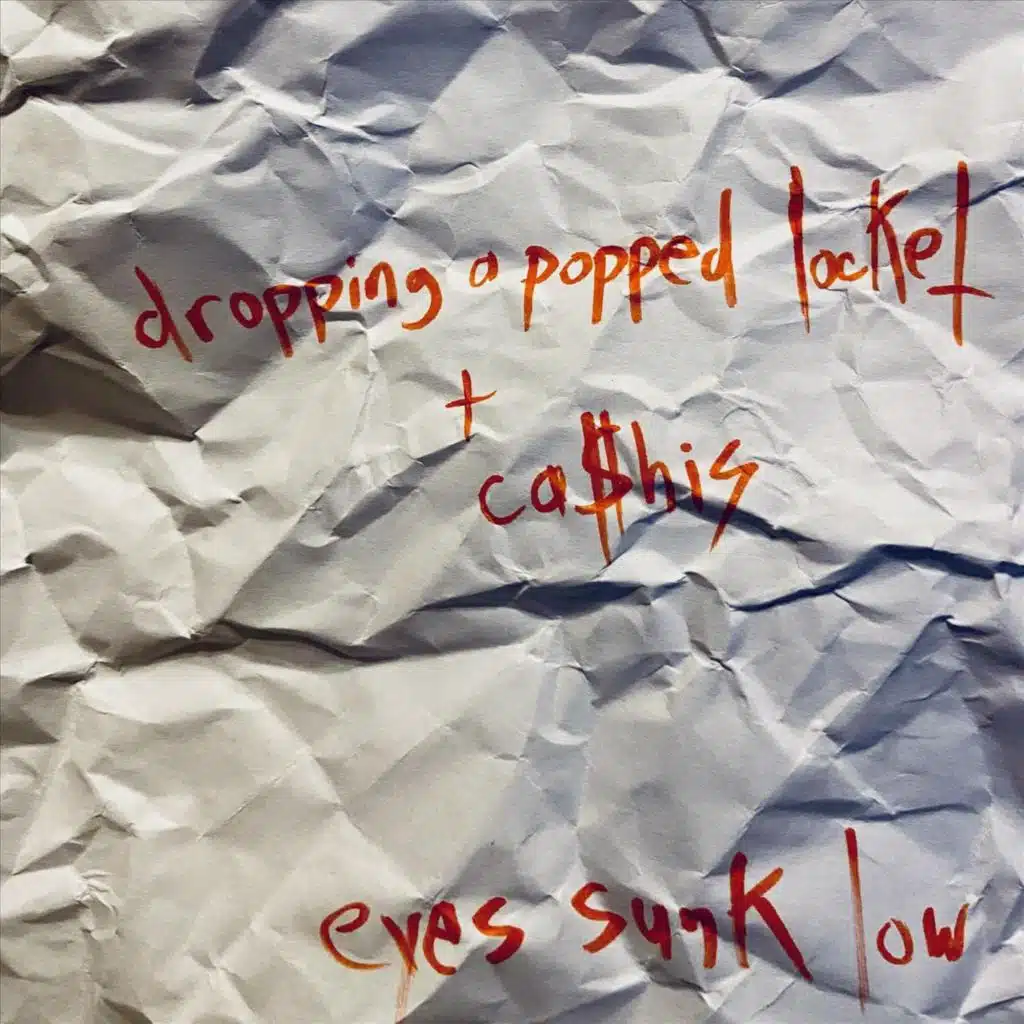 dropping a popped locket
+
ca$his
eyes sunk low